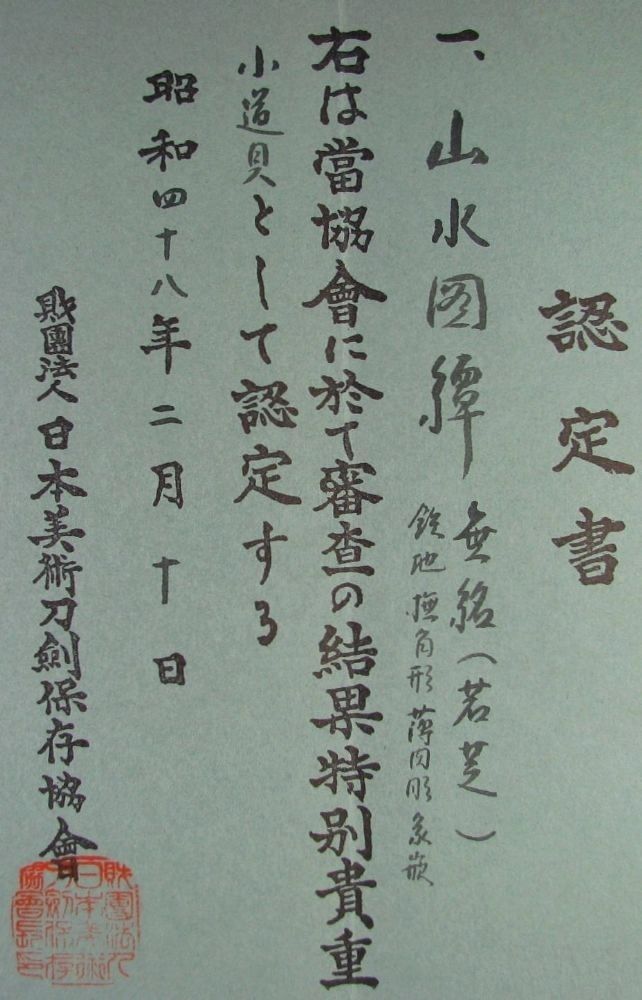 認定書
一、山水図鐔 無銘(若芝)
鉄地 撫角形 薄肉彫 象嵌
右は當協會に於て審査の結果特別貴重
小道具として認定する
昭和四十八年二月十日
財團法人日本美術刀劍保存協會